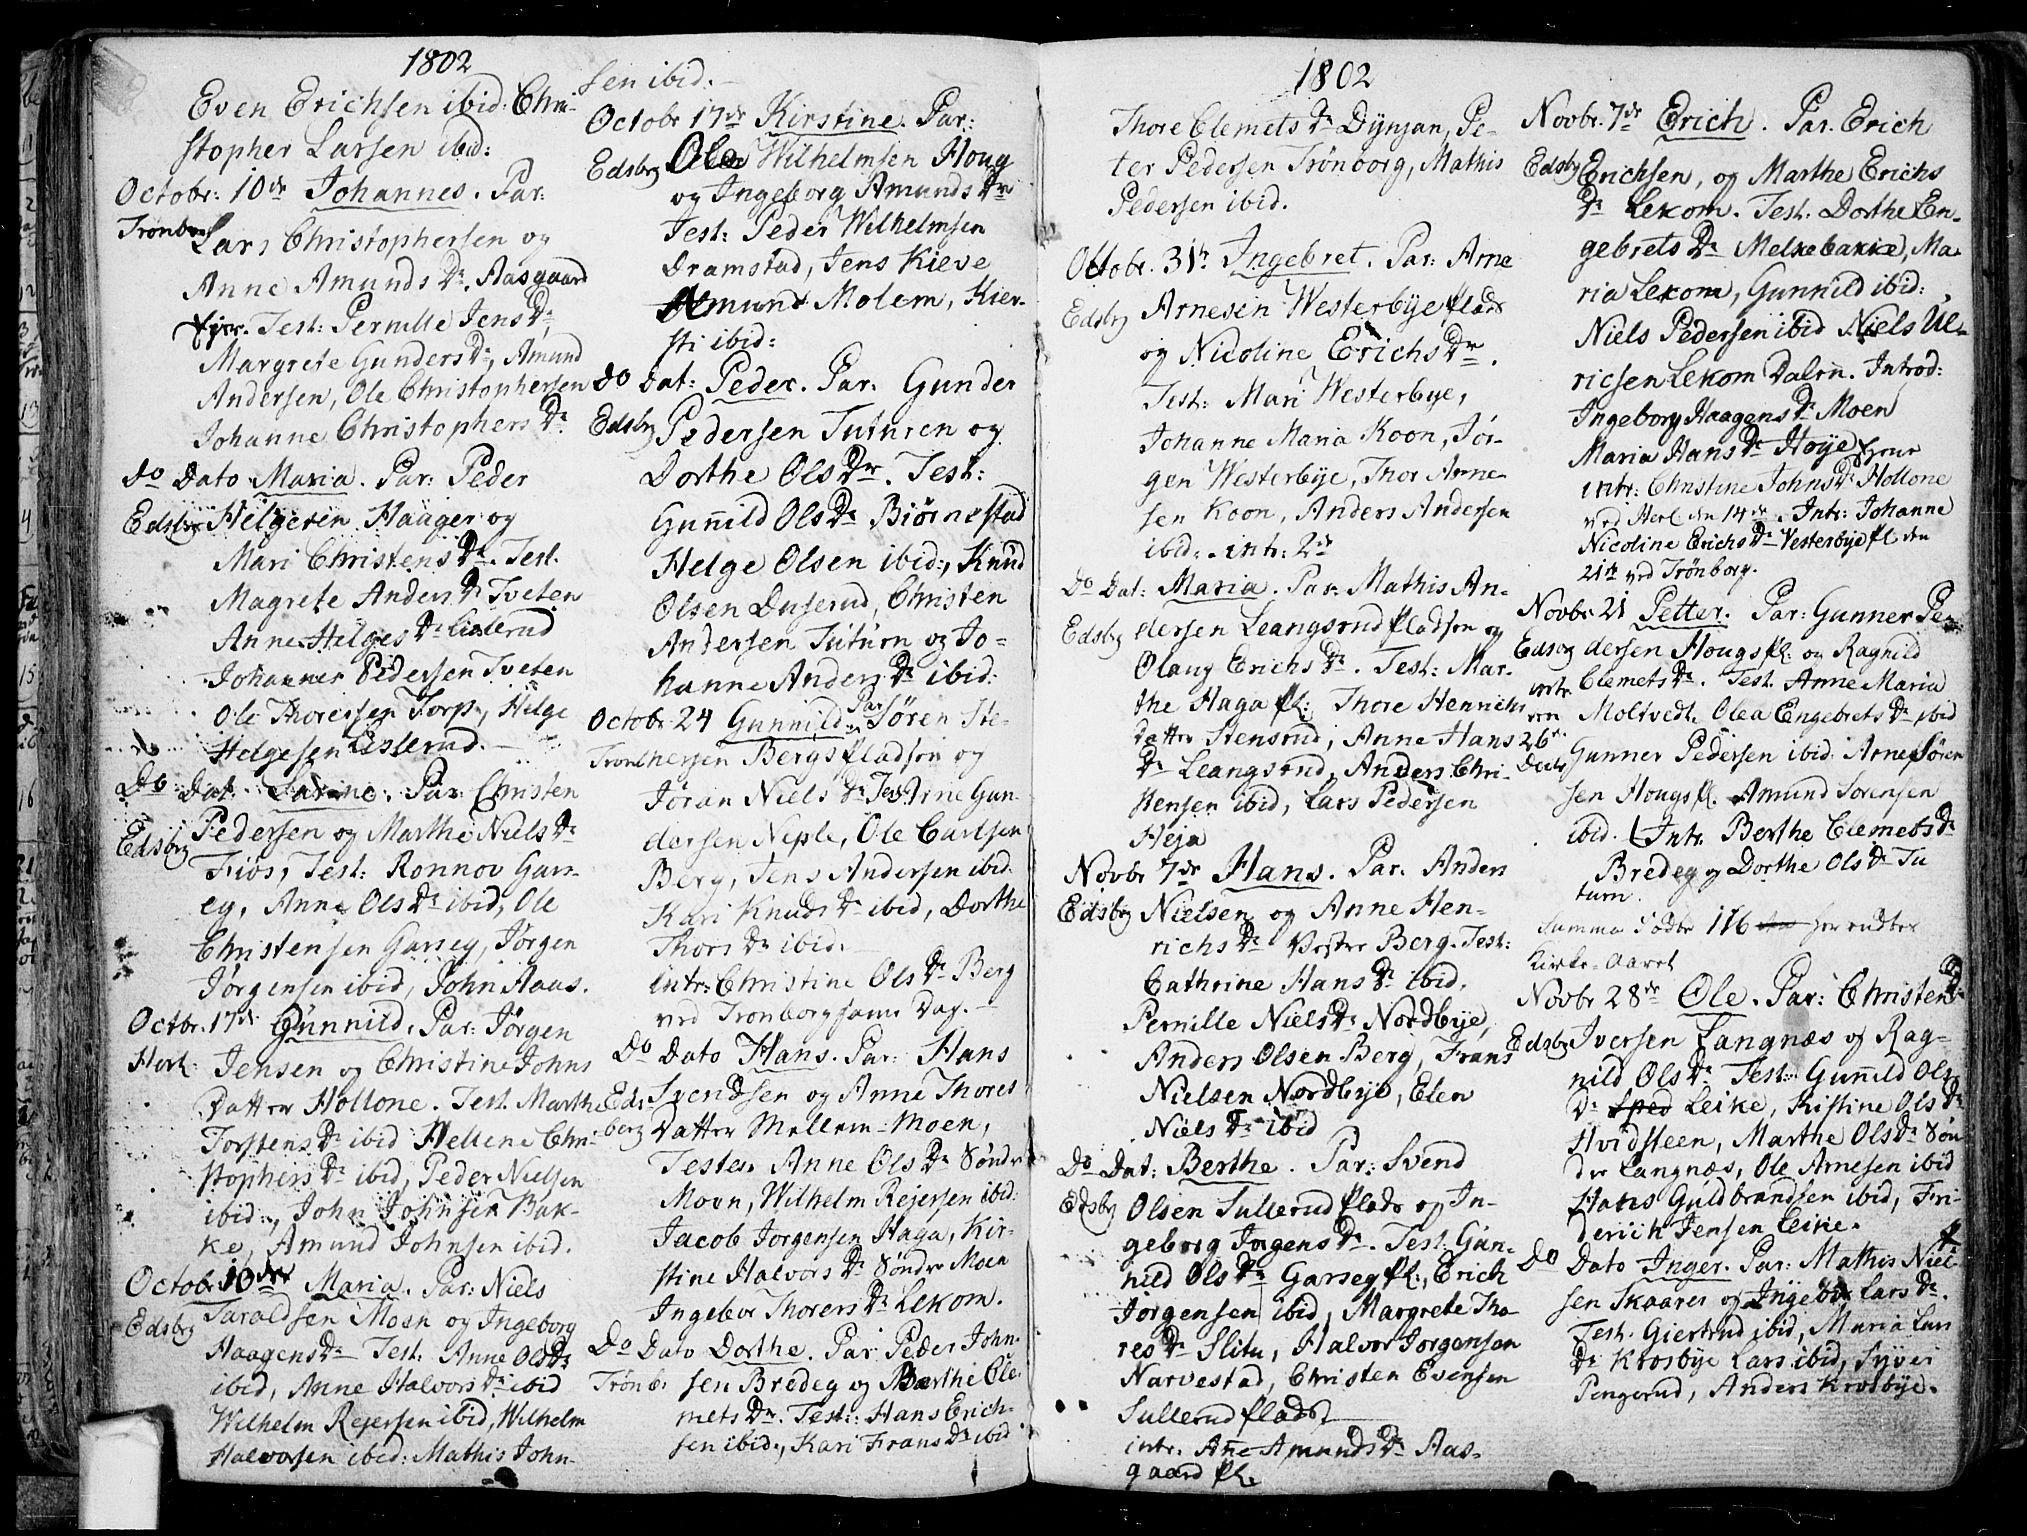 1802
Even Erichsen ibid: Chri-
stopher Larsen ibid:
Octobr: 10de Johannes. Par:
Trønborg Lars Christophersen og
Anne Amunds Dr. Aasgaard
Ejer. Test: Pernille Jens Dr,
Margrete Gunders Dr, Amund
Andersen, Ole Christophersen
Johanne Christophers Dr.
Do Dato Maria. Par: Peder
Edsbg Helgesen Haager og
Mari Christens Dr. Test.
Magrete Anders Dr Tveten
Anne Helges Dr Lislerud
Johannes Pedersen Tveten
Ole Thoressen Torp, Helge
Helgesen Lislerud.
Do Dat: Larine. Par: Christen
Edsbg Pedersen og Marthe Niels Dr
Fiøs, Test: Ronnov Gars-
eg, Anne Ols Dr ibid, Ole
Christensen Garseg, Jørgen
Jørgensen ibid, John Haas.
Octbr. 17de Gunnild. Par: Jørgen
Herl: Jensen og Christine Johns
Datter Hollone. Test. Marthe
Torstens Dr ibid Hellene Chri-
stophers Dr ibid, Peder Nielsen
ibid:, John Johnsen Bak-
ke, Amund Johnsen ibid.
Octobr 10de Maria. Par: Niels
Edsbg Taraldsen Moen og Ingeborg
Haagens Dr Test: Anne Ols Dr
ibid, Anne Halvors Dr ibid
Wilhelm Rejersen ibid, Wilhelm
Halvorsen ibid: Mathis John-
sen ibid.
Octobr 17de Kirstine. Par:
Edsbrg Ole Wilhelmsen Houg
og Ingeborg Amunds Dr
Test: Peder Wilhelmsen
Dramstad, Jens Kieve
Amund Molem, Kier-
sti ibid:
Do Dat: Peder. Par: Gunder
Edsbrg Pedersen Tuturen og
Dorthe Ols Dr. Test:
Gunnild Ols Dr Biørnestad
Helge Olsen ibid:, Knud
Olsen Duserud, Christen
Andersen Tuturn og Jo-
hanne Anders Dr ibid:
Octobr 24 Gunnild Par Søren Ste-
Trønb hersen Bergs pladsen og
Jøran Niels Dr Test Arne Gun-
dersen Neple, Ole Carlsen
Berg, Jens Andersen ibid.
Kari Knuds Dr ibid, Dorthe
Thors Dr ibid.
Intr: Christine Ols Dr Berg
ved Tronborg samme Dag.
Do Dato Hans. Par: Hans
Eds- Svendsen og Anne Thores
berg Datter Mellem-Moen,
Testes. Anne Ols Dr Søndre
Moen, Wilhelm Rejersen ibid:
Jacob Jorgensen Haga, Kir-
stine Halvors Dr Søndre Moen
Ingebor Thorers Dr Lekom.
Do Dato Dorthe. Par: Peder John-
Trønb: sen Bredeg og Berthe Cle-
mets Dr. Test:: Hans Erich-
sen ibid:, Kari Frans Dr ibid
1802
Thore Clemets Dr Dynjan, Pe-
ter Pedersen Trønborg, Mathis
Pedersen ibid.
Octobr. 31te Ingebret. Par: Arne
Edsbrg Arnesen Westerbye plads
og Nicoline Erichs Dr.
Test: Mari Westerbye,
Johanne Maria Koon, Jør-
gen Westerbye, Thor Arne-
sen Koon, Anders Andersen
ibid: intr: 2de
Do Dat: Maria. Par: Mathis An-
Edsbg dersen Leangsrud pladsen og
Olaug Erichs Dr. Test: Mar-
the Haga pl: Thore Henrichs
Datter Stensrud, Anne Hans
Dr Leangsrud, Anders Chri-
stensen ibid, Lars Pedersen
Heja
Novbr 7de Hans. Par. Anders
Edsbrg Nielsen og Anne Hen-
richs Dr Vestre Berg. Test:
Cathrine Hans Dr ibid,
Pernille Niels Dr Nordbye,
Anders Olsen Berg, Frans
Nielsen Nordbye, Elen
Niels Dr ibid
Do Dat: Berthe. Par: Svend
Edsbrg Olsen Sullerud plads og In-
geborg Jørgens Dr. Test: Gun-
nild Ols Dr Garseg pl:, Erich
Jørgensen ibid, Margrete Tho-
res Dr Slitu, Halvor Jorgensen
Narvestad, Christen Evensen
Sullerud plads
intr. Anne Amunds Dr Aas-
gaard pl.
Novbr. 7de Erich. Par. Erich
Edsbg Erichsen, og Marthe Erichs
Dr Lekom. Test. Dorthe En-
gebrets Dr Melnebakke, Ma-
ria Lekom, Gunnild ibid:
Niels Pedersen ibid Niels Ul-
ricsen Lekom Dalen. Introd:
Ingeborg Haagens Dr Moen
Maria Hans Dr Hoye
intr: Christine Johns Dr Hollone
ved Herl den 14de. Intr: Johanne
Nicoline Erichs Dr Vesterbye pl den
21de ved Trønborg.
Novbr 21 Petter. Par: Gunner Pe-
Edsbg dersen Hougs pl. og Ragnild
intr. Clemets Dr. Test. Anne Maria
den Moltvedt, Olea Engebrets Dr ibid
26de Gunner Pedersen ibid: Arne Søren
Decbr sen Hougs pl. Amund Sorensen
ibid. Intr. Berthe Clemets Dr
Bredeg og Dorthe Ols Dr Tu
turn.
Summa Fødte 176 her endtes
Kirke-Aaret
Novbr 28de Ole. Par: Christen
Edsbg Iversen Langnæs og Rag-
nild Ols Dr Test: Gunnild Ols
Dr Leike, Kistine Ols Dr
Hvidsteen, Marthe Ols Dr Søn
dre Langnæs, Ole Arnesen ibid
Hans Guldbrandsen ibid, Fri-
derich Jensen Leike.
Do Dato Inger. Par: Mathis Niel
sen Skaarer og Ingebor Lars Dr.
Test. Giertrud ibid, Maria Lars
Dr Krosbye Lars ibid, Syver
Pengerud, Anders Krosbye.